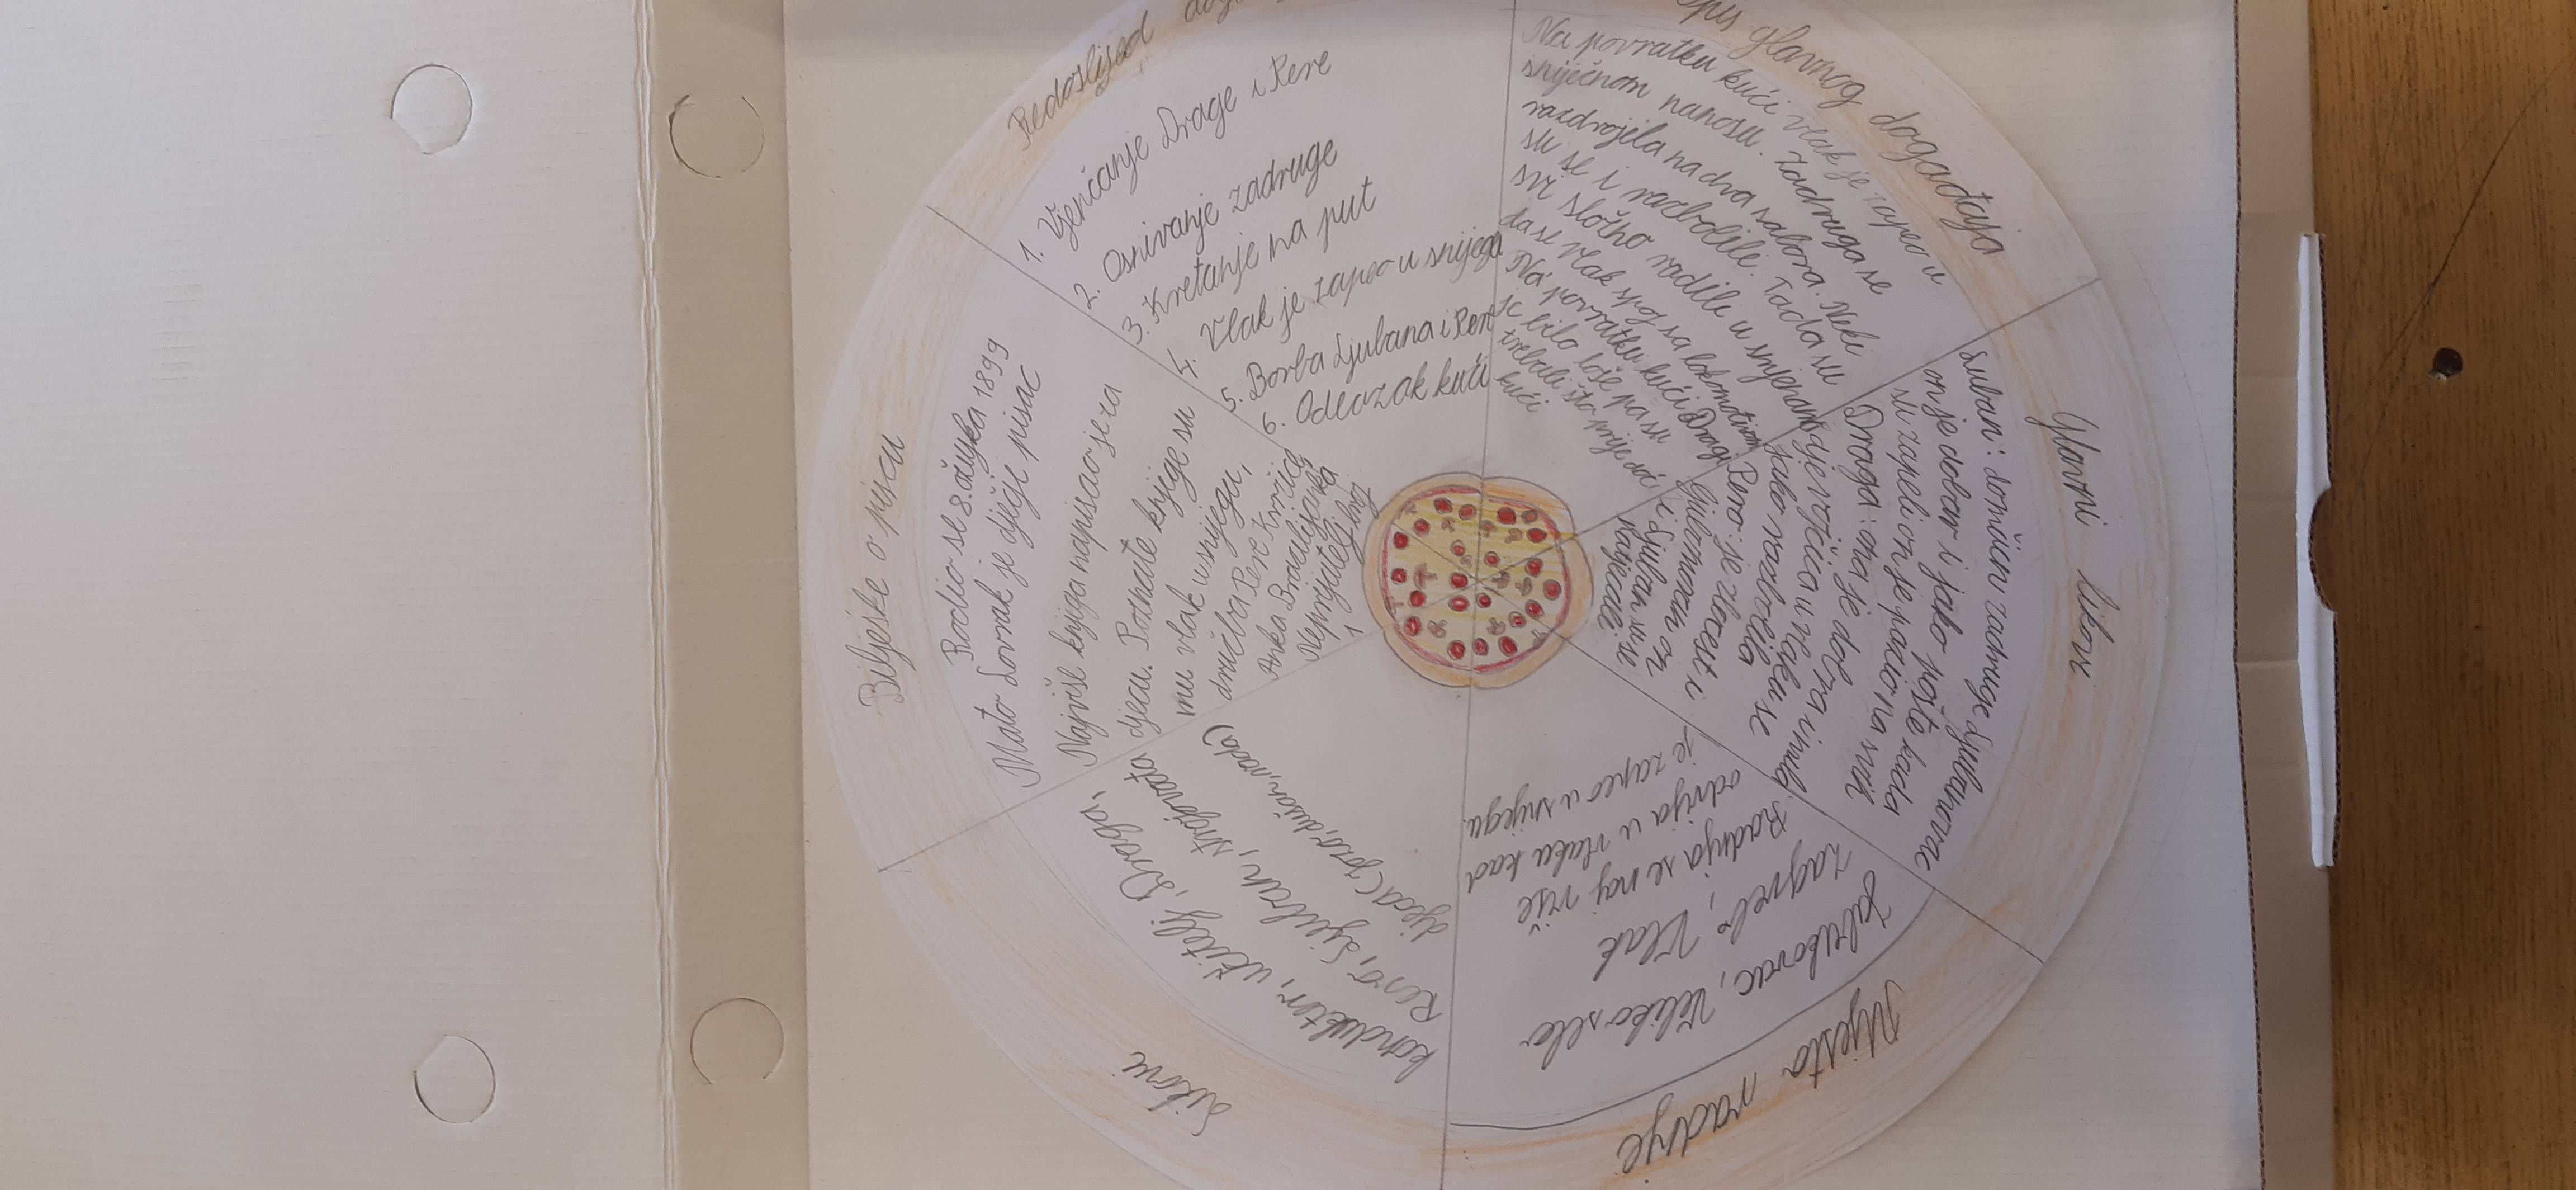 Redoslijed
1. Vjenčanje Drage i Pere
2. Osnivanje zadruge
3. Kretanje na put
4. Vlak je zapeo u snijegu
5. Borba Ljubana i Pere
6. Odlazak kući
opis glavnog događaja
Na povratku kući vlak je zapeo u
sniječnom nanosu. Zadruga se
razdvojila na dva sabora. Neki
su se i razbolili. Tada su
svi složno radili u snijegu
da se vlak spoji sa lokomotivom
Na povratku kući Dragi
je bilo loše pa su
trebali što prije doći
kući
Glavni likovi
Luban: domičen zadruge Ljubanovac
on je dobar i jako pošte kada
su zapeli on je pazio na svih
Draga: ona je dobra i mila
djevojčica u vlaku se
jako razbolila
Pero: je zločest i
ljubomoran on
i Ljuban su se
potjecali
Mjesta radnje
Jabukovac, Veliko selo
zagreb, Vlak
Radnja se naj više
odvija u vlaku kad
je zapeo u snijegu.
Likovi
konduktor, učitelj, Draga,
Pero, Ljuban, strojovođa
djeca (jozo, dušan, rada)
Bilješke o piscu
Rodio se 8. ožujka 1899
Mato Lovrak je dječji pisac
Najviše knjiga napisao je za
djecu. Poznate knjige su
mu vlak u snijegu,
družba Pere Kvržice,
Anka Brazilijanka
Neprijatelj broj
1